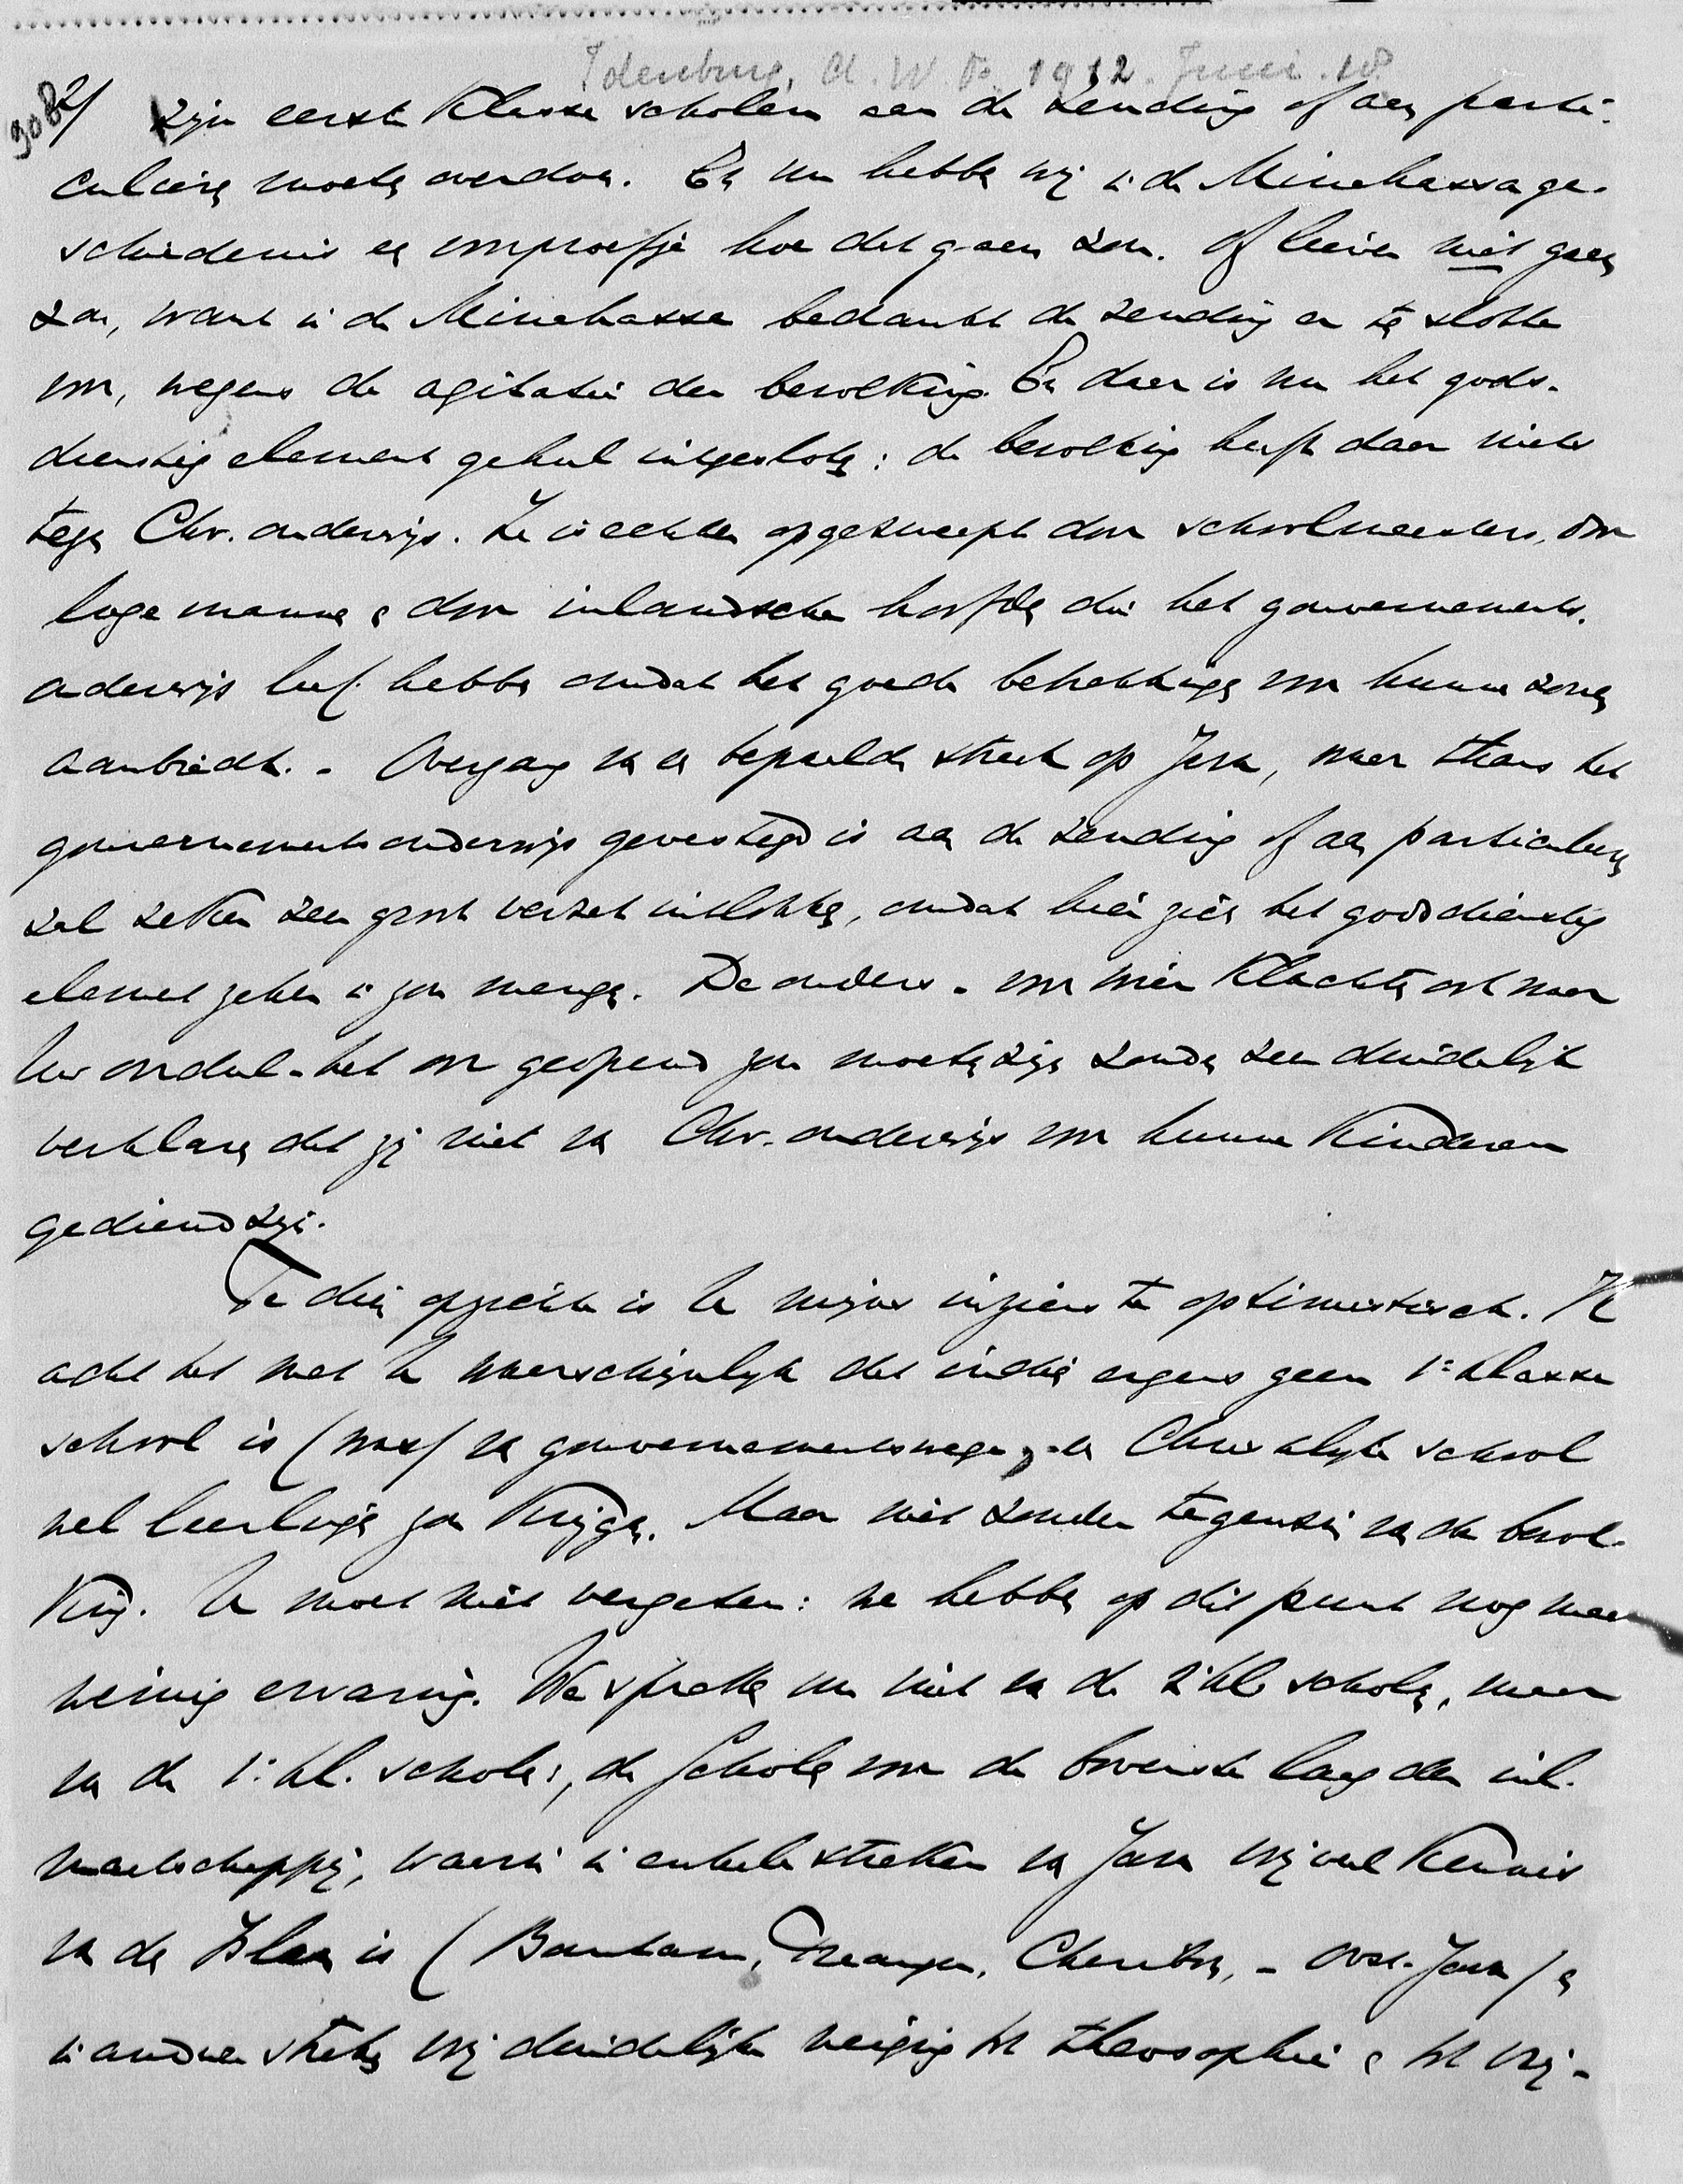 Idenburg, A.W.F. 1912. Juni. 18
9082/ zijn eerste klasse scholen aan de zending of aan parti-
culieren moeten overdoen. En nu hebben wij in de Minehassa ge-
schiedenis een voorproefje hoe dat gaan zou. Of liever niet gaan
zou, want in de Minehassa bedankt de zending er ten slotte
voor, wegens de agitatie der bevolking. En daar is nu het gods-
dienstig element geheel uitgesloten: de bevolking heeft daar niets
tegen Chr. onderwijs. Ze is echter opgezweept door schoolmeesters, door
loge mannen en door inlandsche hoofden die het gouvernements-
onderwijs lief hebben omdat het goede betrekkingen voor hunne zonen
aanbiedt. - Overgang van een bepaalde streek op Java, waar thans het
gouvernementsonderwijs gevestigd is aan de zending of aan particulieren
zal zeker zeer groot verzet uitlokken, omdat hier zich het godsdienstig
element zeker in zou mengen. De ouders - voor wier klachten ook naar
Uw oordeel - het oor geopend zou moeten zijn zouden zeer duidelijk
verklaren dat zij niet van Chr. onderwijs voor hunne kinderen
gediend zijn.
Te dien opzichte is U mijns inziens te optimistisch. Ik
acht het met U waarschijnlijk dat indien ergens geen 1e klasse
school is (was) van gouvernementswege, een Christelijke school
wel leerlingen zou krijgen. Maar niet zonder tegenzin van de bevol-
king. U moet niet vergeten: we hebben op dit punt nog maar
weinig ervaring. We spreken nu niet van de 2e kl. scholen, maar
van de 1e kl. scholen, de scholen voor de bovenste laag der inl.
maatschappij, waarin in enkele streken van Java vrij veel kennis
van de Islam is (Bantam, Preanger, Cheribon, - Oost-Java) en
in andere streken vrij duidelijke neiging tot theosophie en tot vrij-